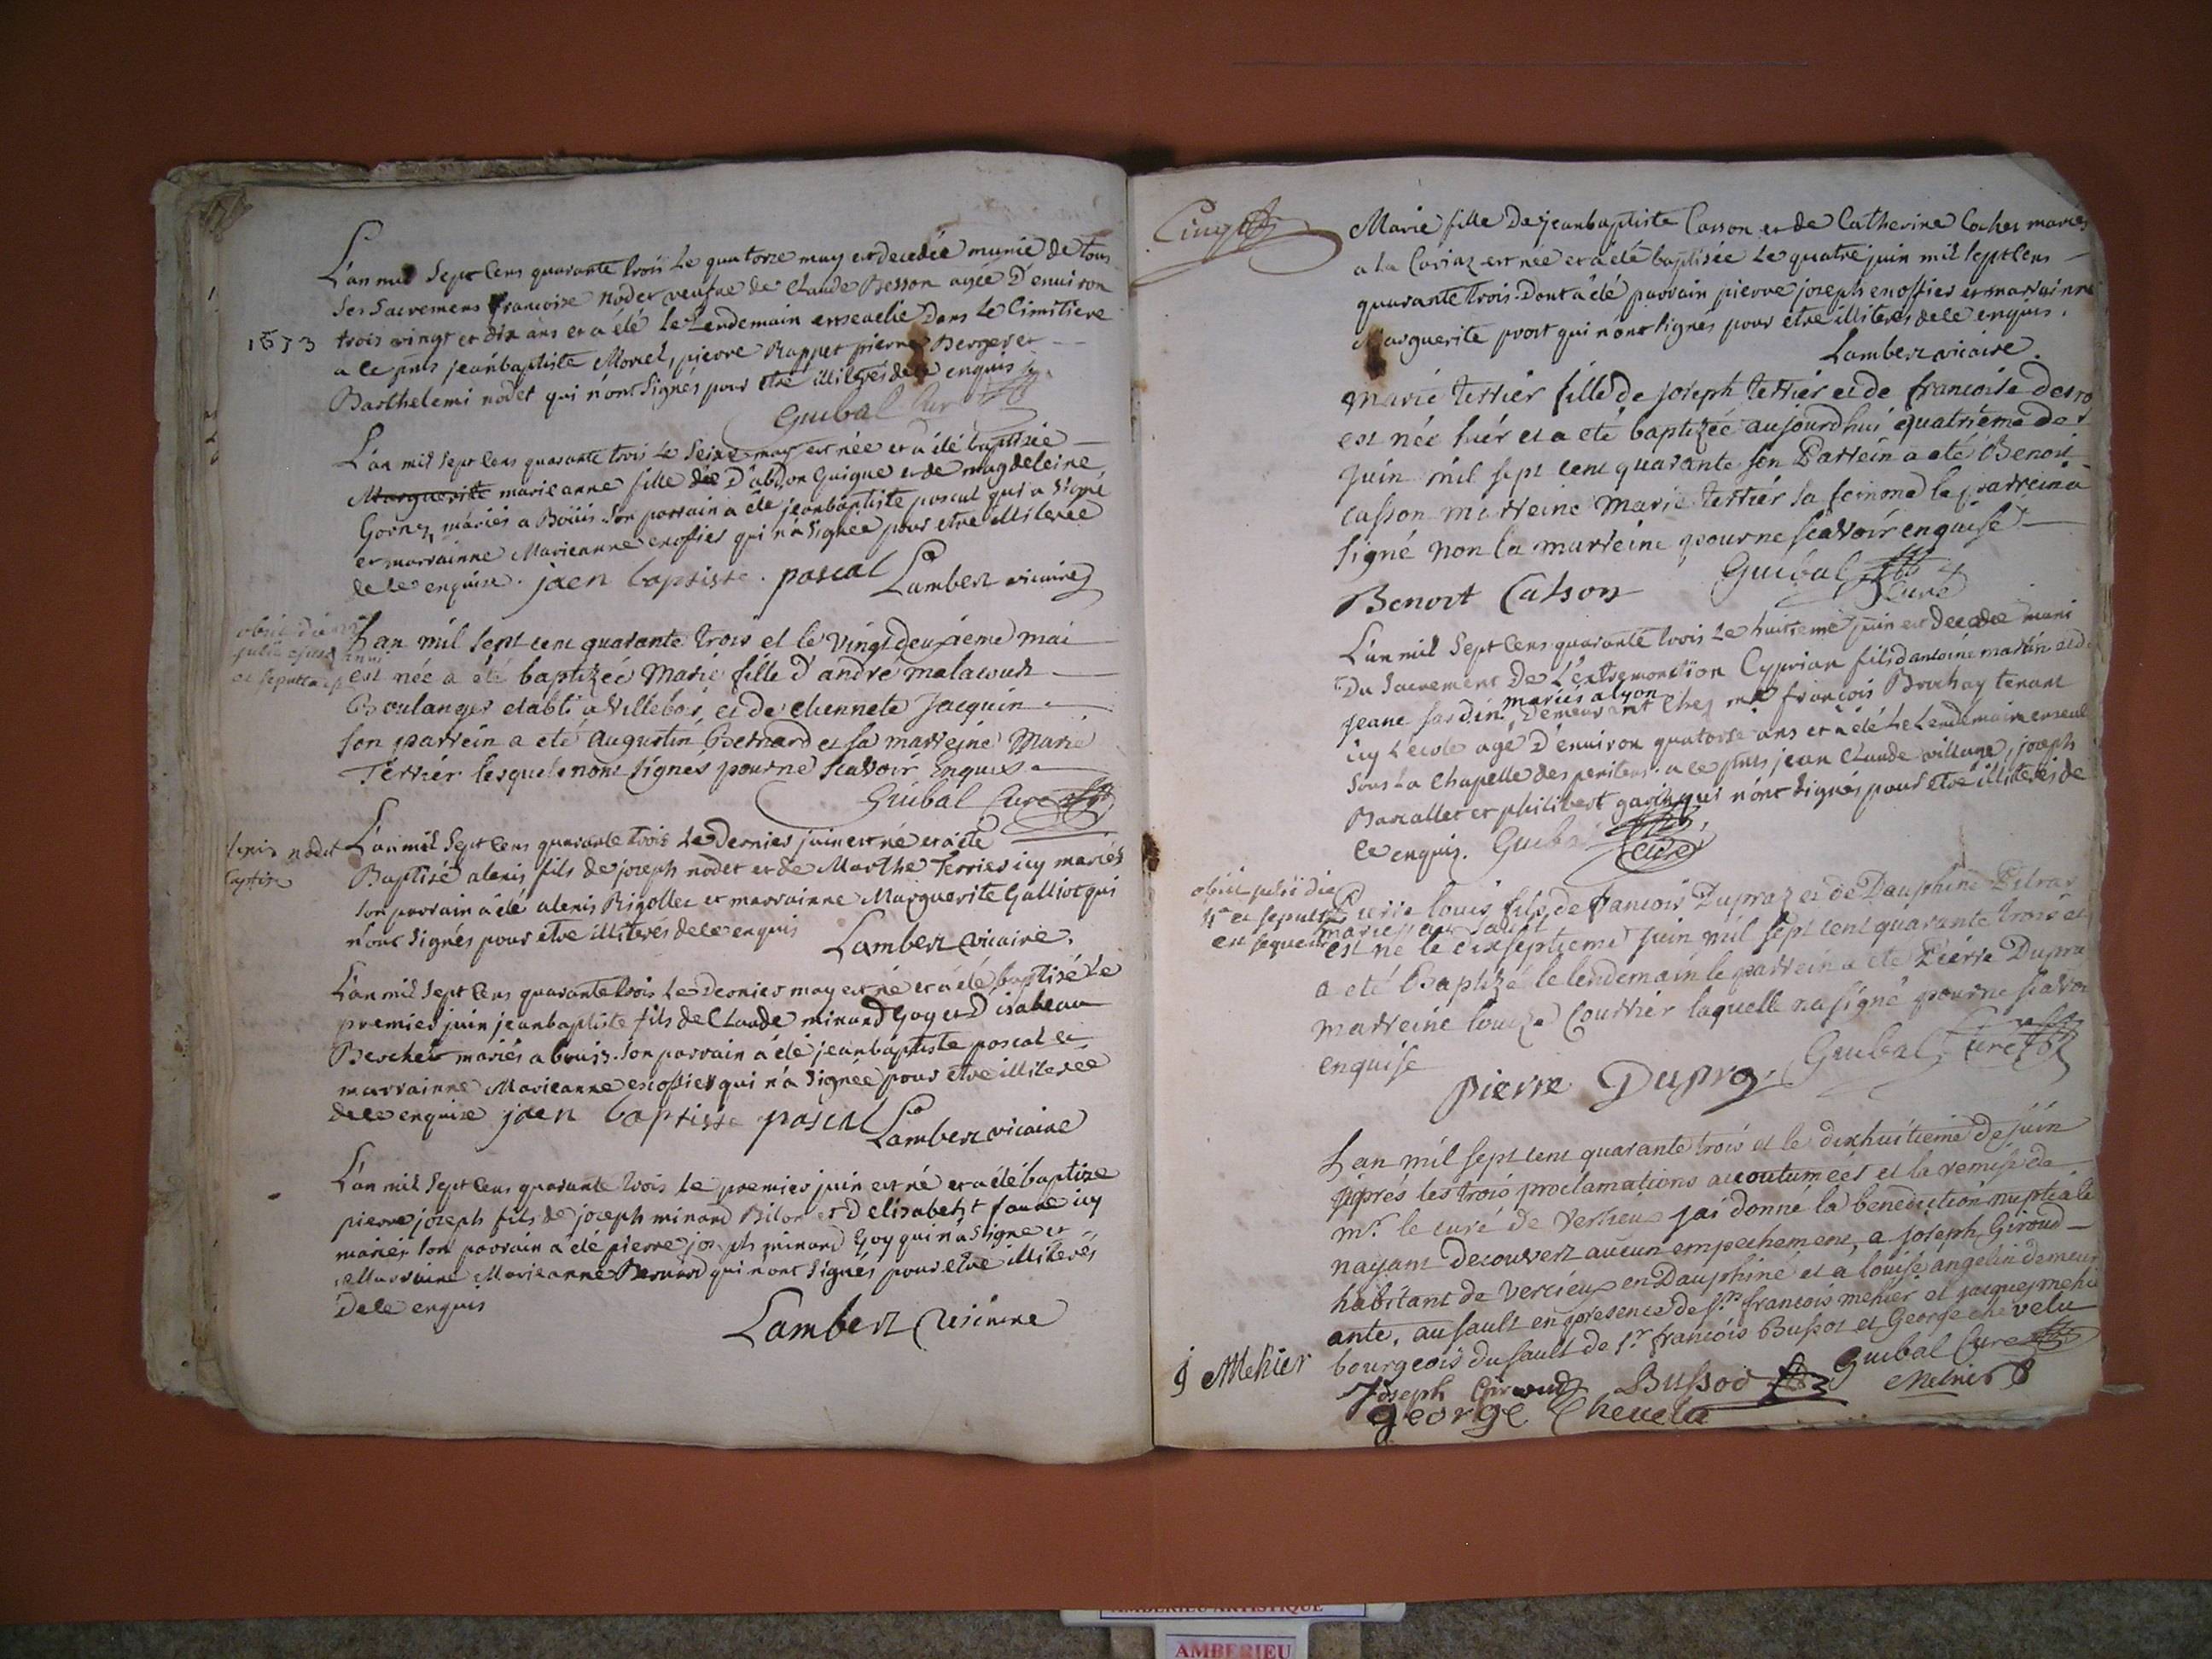 L'an mil Sept Cens quarante trois Le quatorze may est decedée munie de tous
Ses Sacremens francoise nodet veufve de Claude Besson agée D'environ
trois vingt et dix ans et a été le Lendemain ensevelie Dans Le Cimitiere
a ce pnts jeanbaptiste Morel, pierre Rappet pierre Berger et
Barthelemi nodet qui n'ont Signés pour etre illiterés de ce enquis
Guibal Curé
L'an mil sept Cens quarante trois Le Seize may est née et a été baptisée
Marguerite marieanne fille de D'abdon Guigue et de magdeleine
Gornez mariés a Boüis son parrain a été jeanbaptiste pascal qui a signé
et marrainne Marieanne enoffier qui n'a Signée pour etre illiterée
de ce enquise. jaen baptiste. pascal Lamberz vicaire
obiit die
julii ejusd anni
et sepulta
L'an mil sept cent quarante trois et le vingt deuxieme mai
est née a été baptizée Marie fille d'andré malacour
Boulanger etabli a villebois et de chennete Jacquin
son parrein a eté augustin Bernard et sa marreine Marie
Terrier lesquels nont signes pour ne scavoir enquis
Guibal Curé
alexis nodet
baptise
L'an mil Sept Cens quarante trois Le Dernier juin est né et a été
Baptisé alexis fils de joseph nodet et de Marthe Terrier icy mariés
son parrain a été alexis Rigollet et marrainne Marguerite Galliot qui
n'ont Signés pour etre illiterés de ce enquis Lamberz vicaire.
L'an mil Sept Cens quarante trois Le Dernier may est né et a été baptisé Le
premier juin jeanbaptiste fils de Claude minard Goy et D'isabeau
Berchet mariés a bouis. son parrain a été jeanbaptiste pascal et
marrainne Marieanne enoffier qui n'a Signée pour etre illiterée
de ce enquise jaen baptiste pascal Lamberz vicaire
L'an mil Sept Cens quarante trois Le premier juin est né et a été baptize
pierre joseph fils de joseph minard Bilon et D'elisabetht faure icy
mariés son parrain a été pierre joseph minard Goy qui n'a signé et
Marraine Marieanne Bernard qui n'ont Signés pour etre illiterés
De ce enquis
Lamberz Vicaire
Cinq
Marie fille De jeanbaptiste Casson et de Catherine Cocher mariés
a La Coriaz est née et a été baptisée Le quatre juin mil Sept Cens
quarante trois. Dont a été parrain pierre joseph enoffier et marrainne
Marguerite prost qui n'ont Signés pour etre illiterés de ce enquis.
Lamberz vicaire.
Marie terrier fille de joseph terrier et de francoise desro
est née hier et a eté baptizée aujourdhui quatrieme de
Juin mil sept cent quarante son Parrein a eté Benoit
Casson marreine Marie terrier sa femme le parrein a
signé non la marreine pour ne scavoir enquise
Benoit Casson Guibal Curé
L'an mil Sept Cens quarante trois Le huitieme juin est decedé muni
Du Sacrement De L'extremonction Cyprian fils d'antoine martin et de
jeane jardin mariés a lyon Demeurant Chez me françois Brochay tenant
icy L'ecole agé D'environ quatorze ans et a été Le Lendemain enseveli
Sous La Chapelle des penitens. a ce pnts jean Claude village, joseph
Barallet et philibert garin qui n'ont Signés pour etre illiterés de
ce enquis. Guibal Curé
obiit julii die
et sepultus
en sequenti
Pierre louis fils de francois Dupraz et de Dauphine
mariés au Sault
est né le dixseptieme juin mil sept cent quarante trois et
a eté baptizé le lendemain le parrein a eté Pierre Dupra
marreine louize Courrier laquelle na signé pour ne scavoir
enquise
pierre Dupra Guibal Curé
L'an mil sept cent quarante trois et le dixhuitieme de juin
aprés les trois proclamations accoutumées et la remise de
mr. le curé de Verrieu jai donné la benediction nuptiale
nayant decouvert aucun empechement, a Joseph Giroud
habitant de vercieu en Dauphiné et a louise angelin demeur
ante, au sault en presence de srs francois mehier et jacques mehie
bourgeois du sault de sr francois Bussot et George chevelu
J Mehier Guibal Curé
Joseph Giroud Bussod Mehier
george Chevelu
AMBERIEU ARTISTIQUE
AMBERIEU